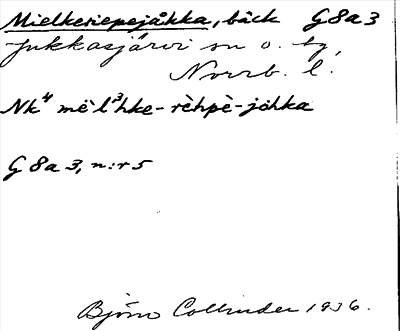 Mielkeriepejåkka, bäck G8a3
Jukkasjärvi sn o. tg,
Norrb. l.
Nk⁴ mè̀l³hke-rèhpè-johka
G 8a 3, n:r 5
Björn Collinder 1936.